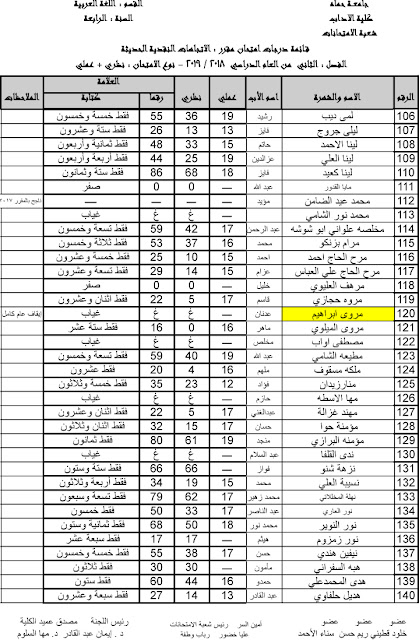 جامعة حماه
كلية الآداب
شعبة الامتحانات
القسم : اللغة العربية
السنة : الرابعة
قائمة درجات امتحان مقرر : الاتجاهات النقدية الحديثة
الفصل : الثاني من العام الدراسي ٢٠١٨ / ٢٠١٩ - نوع الامتحان : نظري + عملي
الرقم الاسم والشهرة اسم الأب عملي نظري العلامة رقما كتابة الملاحظات
106 لمى ديب رشيد 19 36 55 فقط خمسة وخمسون
107 ليلى جروج فايز 13 13 26 فقط ستة وعشرون
108 لينا الاحمد حاتم 15 33 48 فقط ثمانية وأربعون
109 لينا العلي عزالدين 19 25 44 فقط أربعة وأربعون
110 لينا كعيد فايز 18 68 86 فقط ستة وثمانون
111 مايا القدور عبد الله — 0 0 صفر
112 محمد عبد الضامن مؤيد — — — — ناجح بالمقرر ٢٠١٧
113 محمد نور الشامي — غ غ غياب
114 مخلصه علواني ابو شوشه عبد الرحمن 17 42 59 فقط تسعة وخمسون
115 مرام بزنكو محمد 16 37 53 فقط ثلاثة وخمسون
116 مرح الحاج احمد احمد 15 10 25 فقط خمسة وعشرون
117 مرح الحاج علي العباس عزام 15 14 29 فقط تسعة وعشرون
118 مرهف العليوي خليل — 0 0 صفر
119 مروه حجازي قاسم 17 5 22 فقط اثنان وعشرون
120 مروى ابراهيم عدنان — غ غ غياب إيقاف عام كامل
121 مروى الميلوي ماهر 16 0 16 فقط ستة عشر
122 مصطفى اواب مخلص — غ غ غياب
123 مطيعه الشامي عبد الله 19 40 59 فقط تسعة وخمسون
124 ملكه مسقوف ملهم 16 4 20 فقط عشرون
125 منار زيدان فؤاد 12 23 35 فقط خمسة وثلاثون
126 مها الاسطه حازم — غ غ غياب
127 مهند غزالة عبدالغني 17 5 22 فقط اثنان وعشرون
128 مؤمنة حوا حسان 17 15 32 فقط اثنان وثلاثون
129 مؤمنه البرازي منجد 19 61 80 فقط ثمانون
130 ندى القلفا عبد السلام — غ غ غياب
131 نزهة شنو فواز — 66 66 فقط ستة وستون
132 نسيبة العلي محمد 15 19 34 فقط أربعة وثلاثون
133 نهلة المخللاتي محمد زهير 17 62 79 فقط تسعة وسبعون
134 نور العاري عبد الناصر 17 33 50 فقط خمسون
135 نور النوير محمد نور 18 50 68 فقط ثمانية وستون
136 نور زمزوم هيثم — 17 17 فقط سبعة عشر
137 نيفين هندي حسن 17 38 55 فقط خمسة وخمسون
138 هبه السفراني مأمون — 30 30 فقط ثلاثون
139 هدى المحمدعلي حمدو 16 44 60 فقط ستون
140 هديل حلفاوي عبد القادر 13 14 27 فقط سبعة وعشرون
عضو عضو عضو أمين السر رئيس شعبة الامتحانات رئيس اللجنة مصدق عميد الكلية
خلود قطيني ريم حسن سناء الأحمد عليا خضور رباب وطفة د . إيمان عبد القادر د. مها السلوم